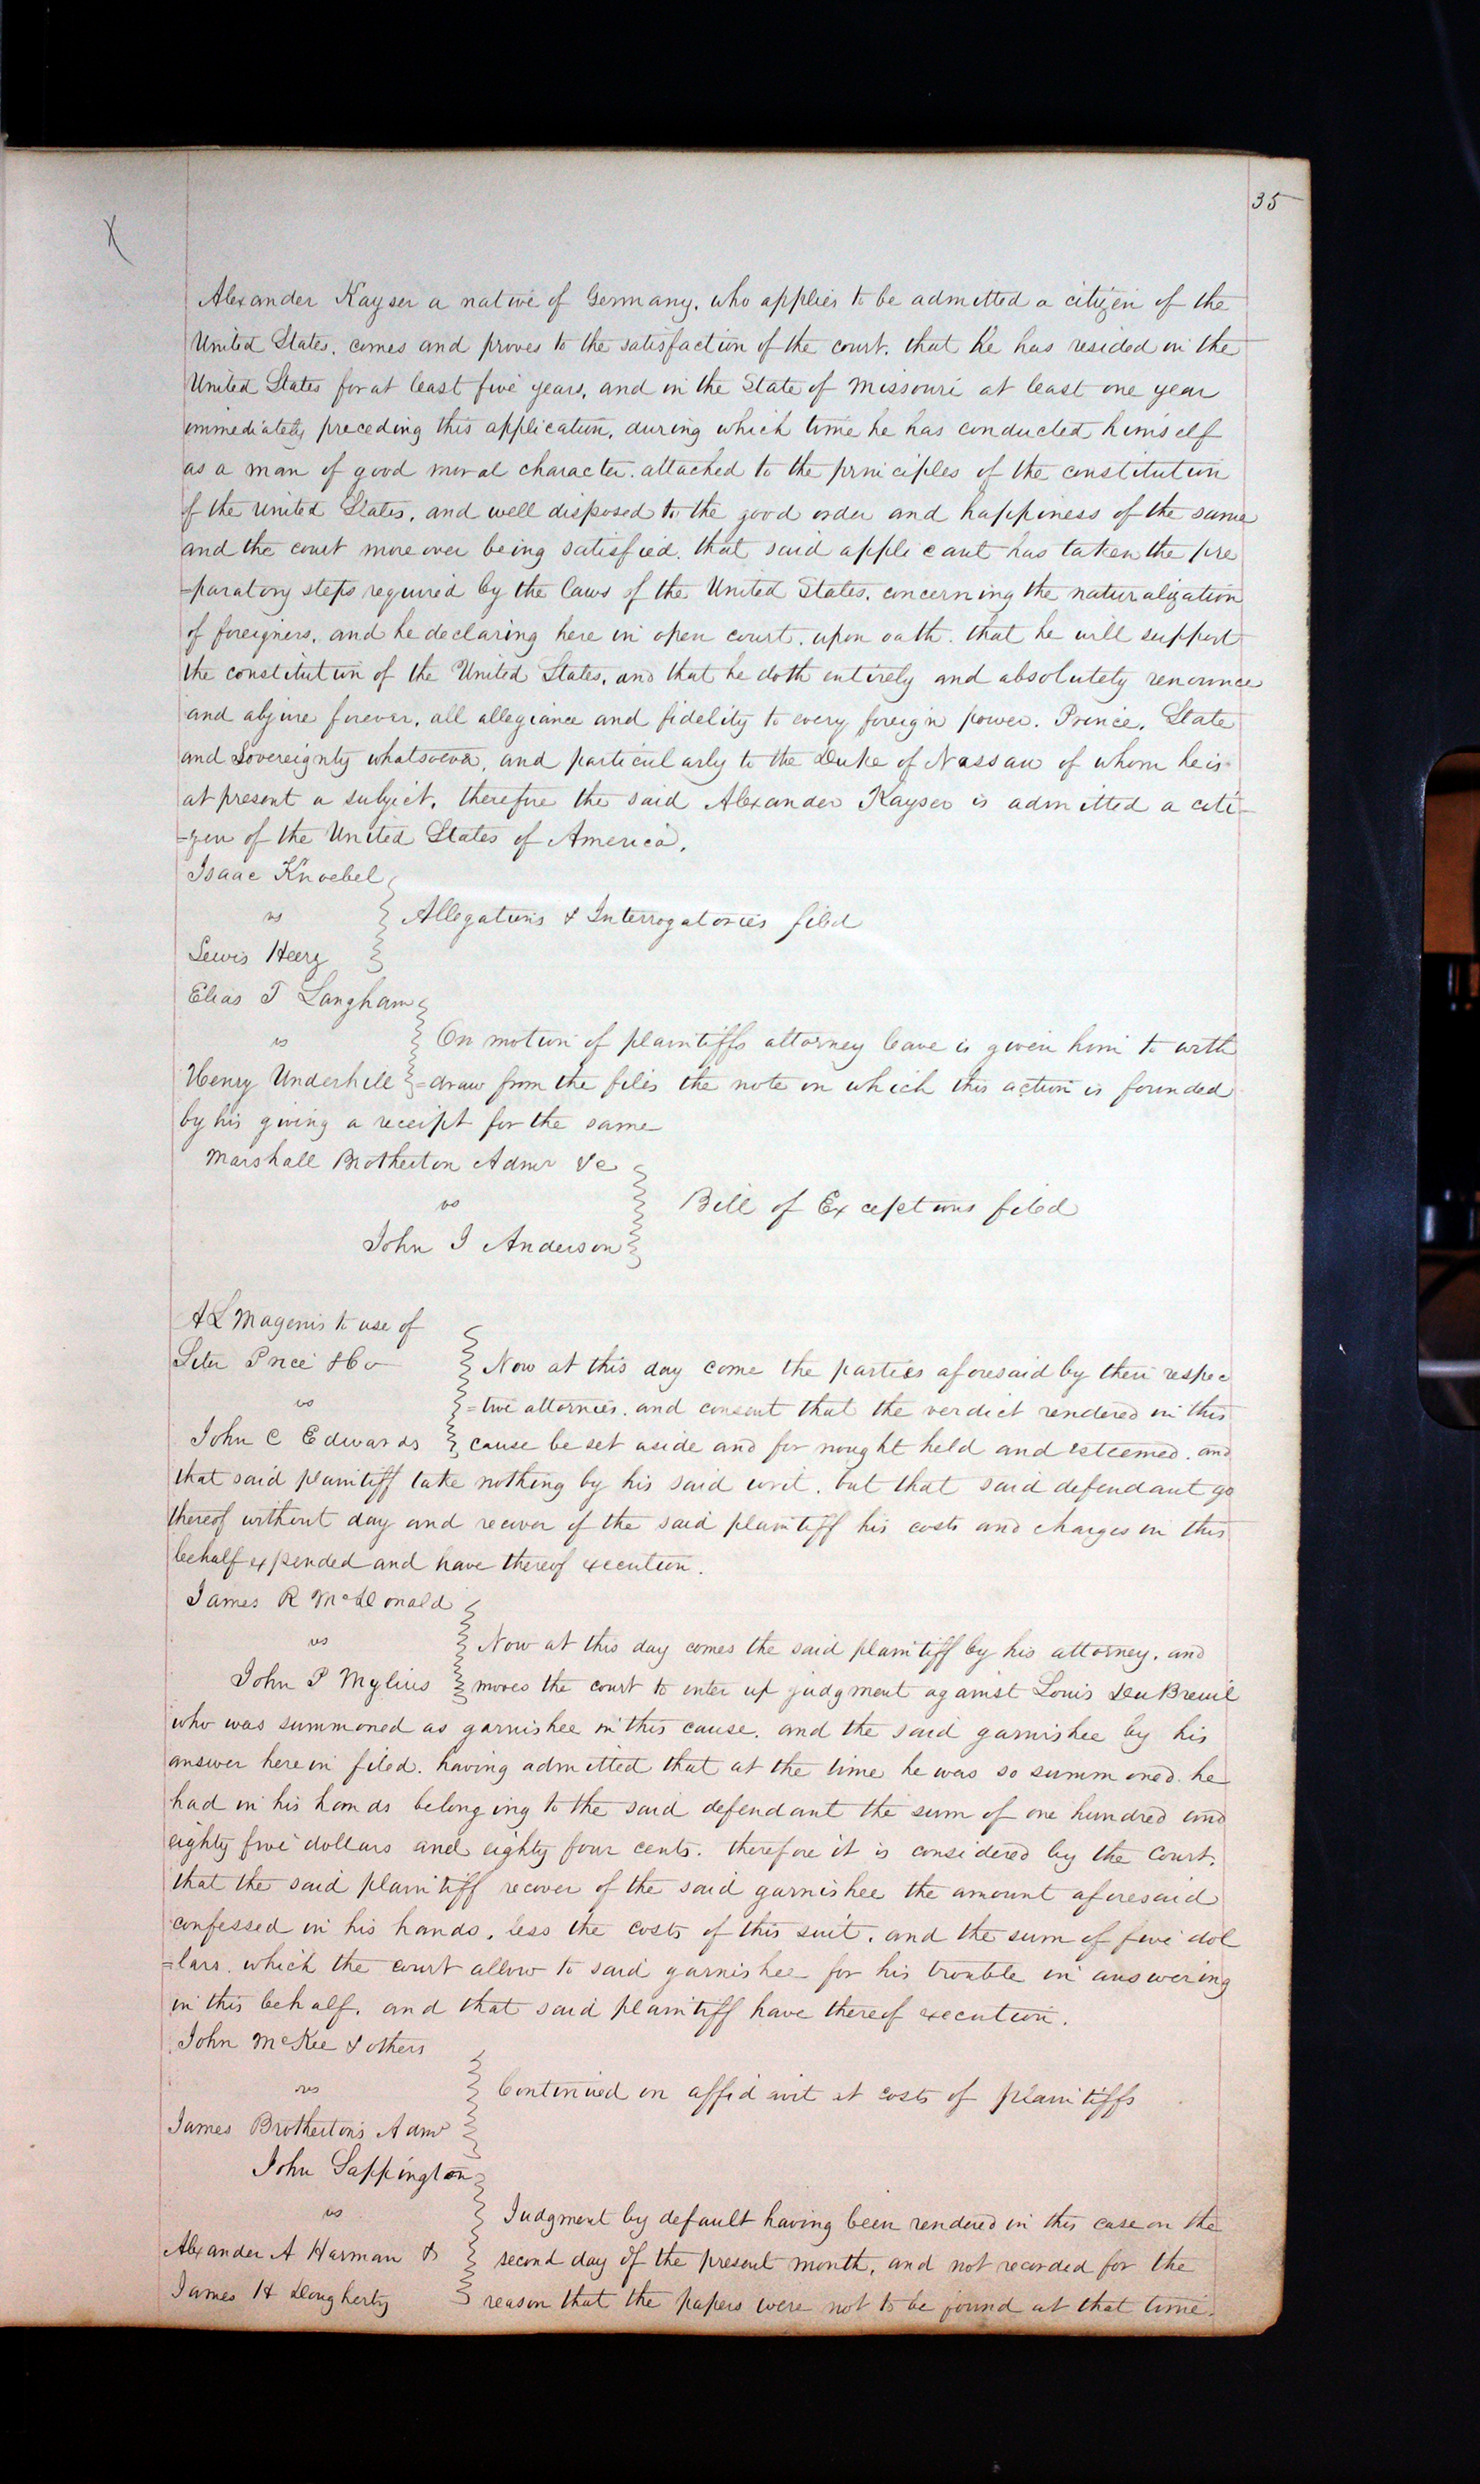 35
X
Alexander Kayser a native of Germany, who applies to be admitted a citizen of the
United States, comes and proves to the satisfaction of the court, that he has resided in the
United States for at least five years, and in the State of Missouri at least one year
immediately preceding this application, during which time he has conducted himself
as a man of good moral character. attached to the principles of the constitution
of the United States, and well disposed to the good order and happiness of the same
and the court moreover being satisfied. that said applicant has taken the pre
=paratory steps required by the laws of the United States, concerning the naturalization
of foreigners, and he declaring here in open court. upon oath. that he will support
the constitution of the United States, and that he doth entirely and absolutely renounce
and abjure forever, all allegiance and fidelity to every foreign power. Prince, State
and Sovereignty whatsoever, and particularly to the Duke of Nassau of whom he is
at present a subject, therefore the said Alexander Kayser is admitted a citi-
-zen of the United States of America.
Isaac Knoebel
vs
Allegations & Interrogatories filed
Lewis Heerz
Elias T Langham
vs
On motion of plaintiffs attorney leave is given him to with
Henry Underhill =draw from the files the note on which this action is founded
by his giving a receipt for the same
Marshall Brotherton Admr &c
vs
Bill of Exceptions filed
John J Anderson
A L Magenis to use of
Liter Price & Co
Now at this day come the parties aforesaid by their respec
vs
=tive attornies. and consent that the verdict rendered in this
John C Edwards cause be set aside and for nought held and esteemed. and
that said plaintiff take nothing by his said writ. but that said defendant go
thereof without day and recover of the said plaintiff his costs and charges in this
behalf expended and have thereof execution.
James R McDonald
vs
Now at this day comes the said plaintiff by his attorney. and
John P Mylius moves the court to enter up judgment against Louis DuBreuil
who was summoned as garnishee in this cause. and the said garnishee by his
answer herein filed. having admitted that at the time he was so summoned. he
had in his hands belonging to the said defendant the sum of one hundred and
eighty five dollars and eighty four cents. therefore it is considered by the Court,
that the said plaintiff recover of the said garnishee the amount aforesaid
confessed in his hands, less the costs of this suit. and the sum of five dol
=lars. which the court allow to said garnishee for his trouble in answering
in this behalf. and that said plaintiff have thereof execution.
John McKee & others
vs
Continued on affidavit at costs of plaintiffs
James Brotherton's Admr
John Sappington
vs
Judgment by default having been rendered in this case on the
Alexander A Harman &
second day of the present month, and not recorded for the
James H Dougherty
reason that the papers were not to be found at that time.